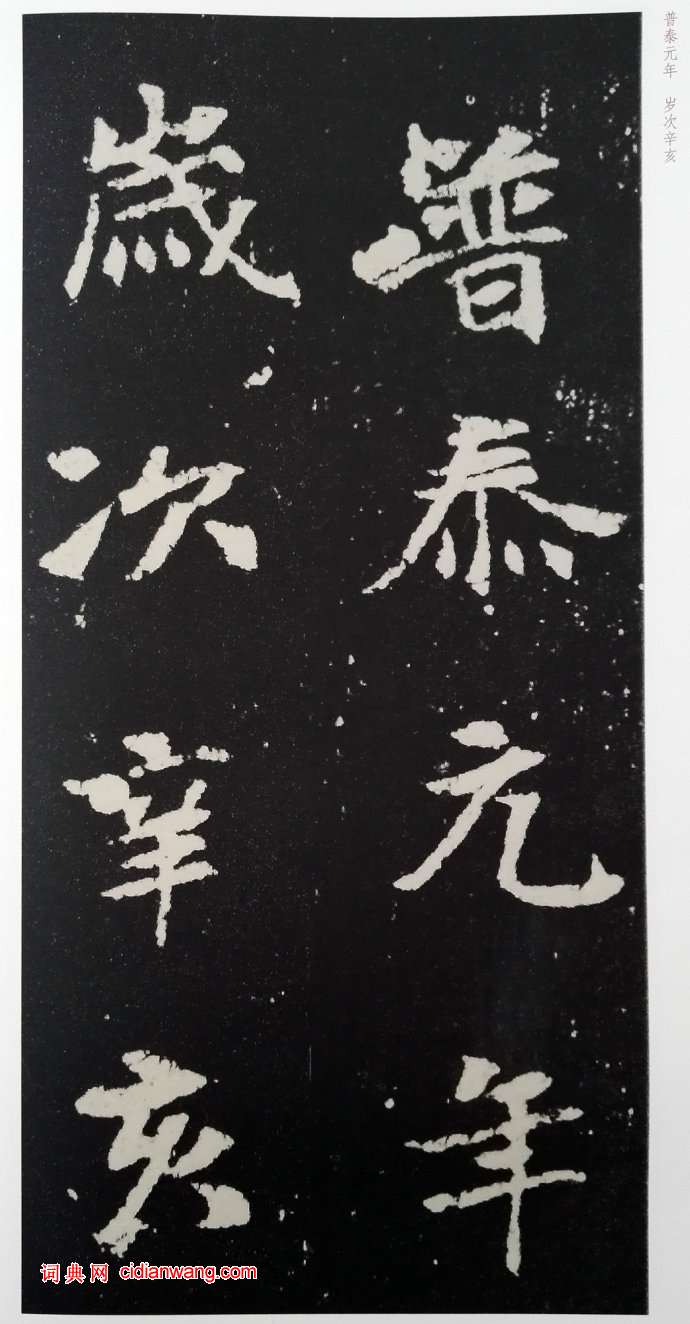 普泰元年
歳次辛亥
普泰元年 岁次辛亥
词典网 cidianwang.com